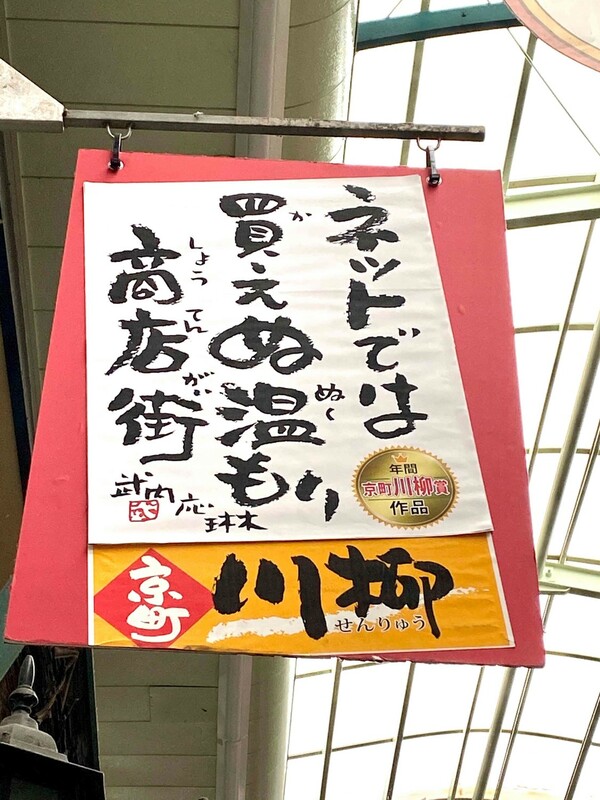 ネットでは
買えぬ温もり
か
ぬく
商店街
しょうてんがい
武内応琳
年間
京町川柳賞
作品
京町
川柳
せんりゅう